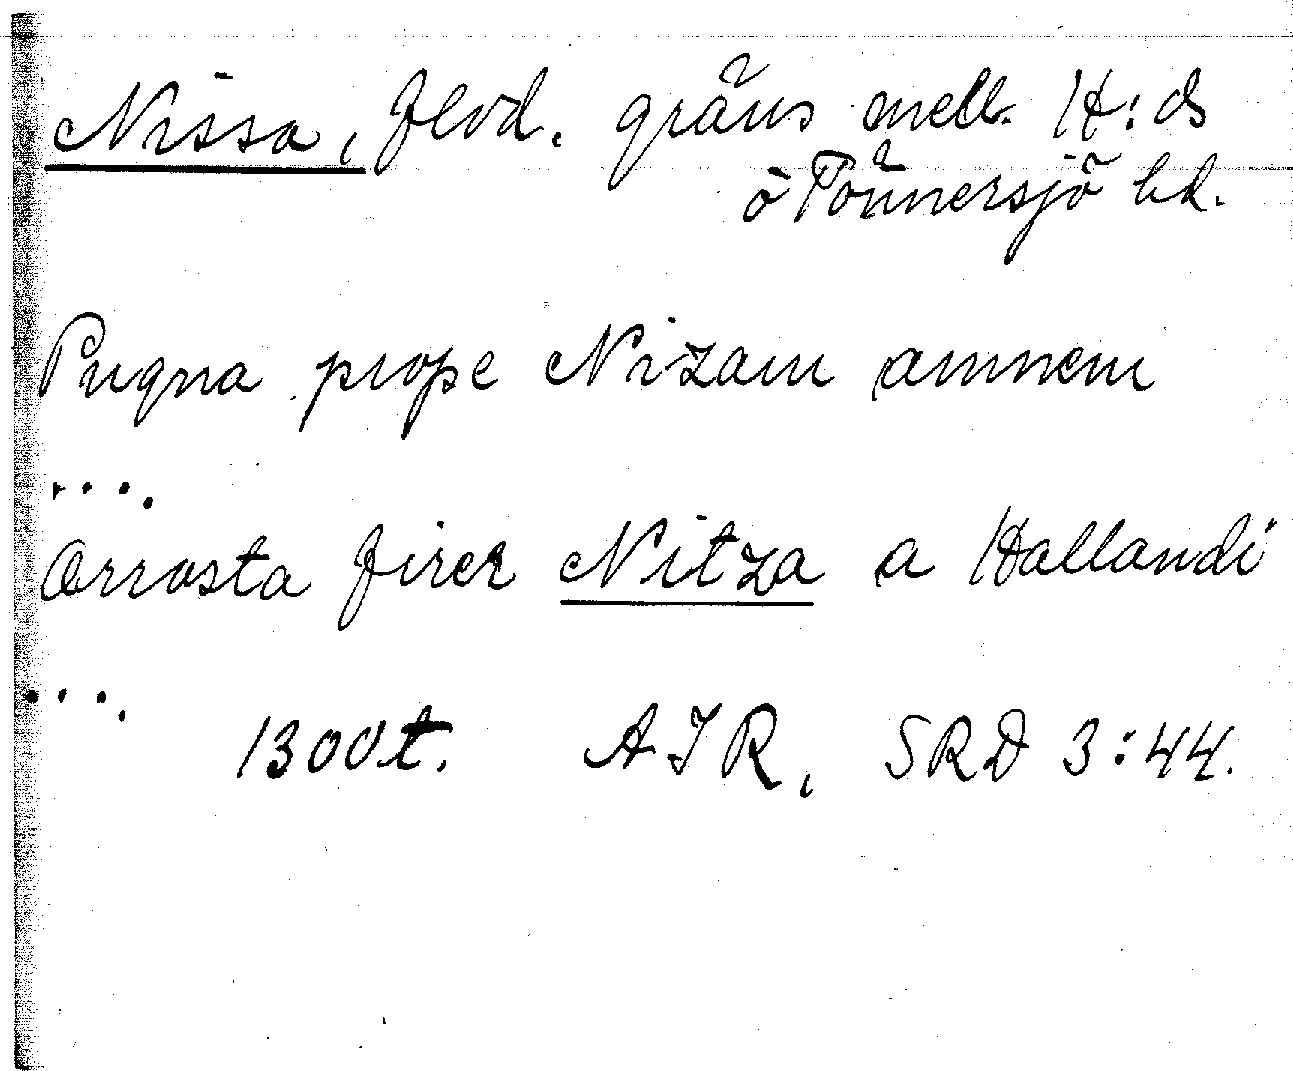 Nissa, flod. gräns mell. H:ds
o Tönnersjö hd.
Pugna prope Nizam amnem
....
Orrosta firer Nitza a Hallandi
....
1300t. AIR, SRD 3:44.